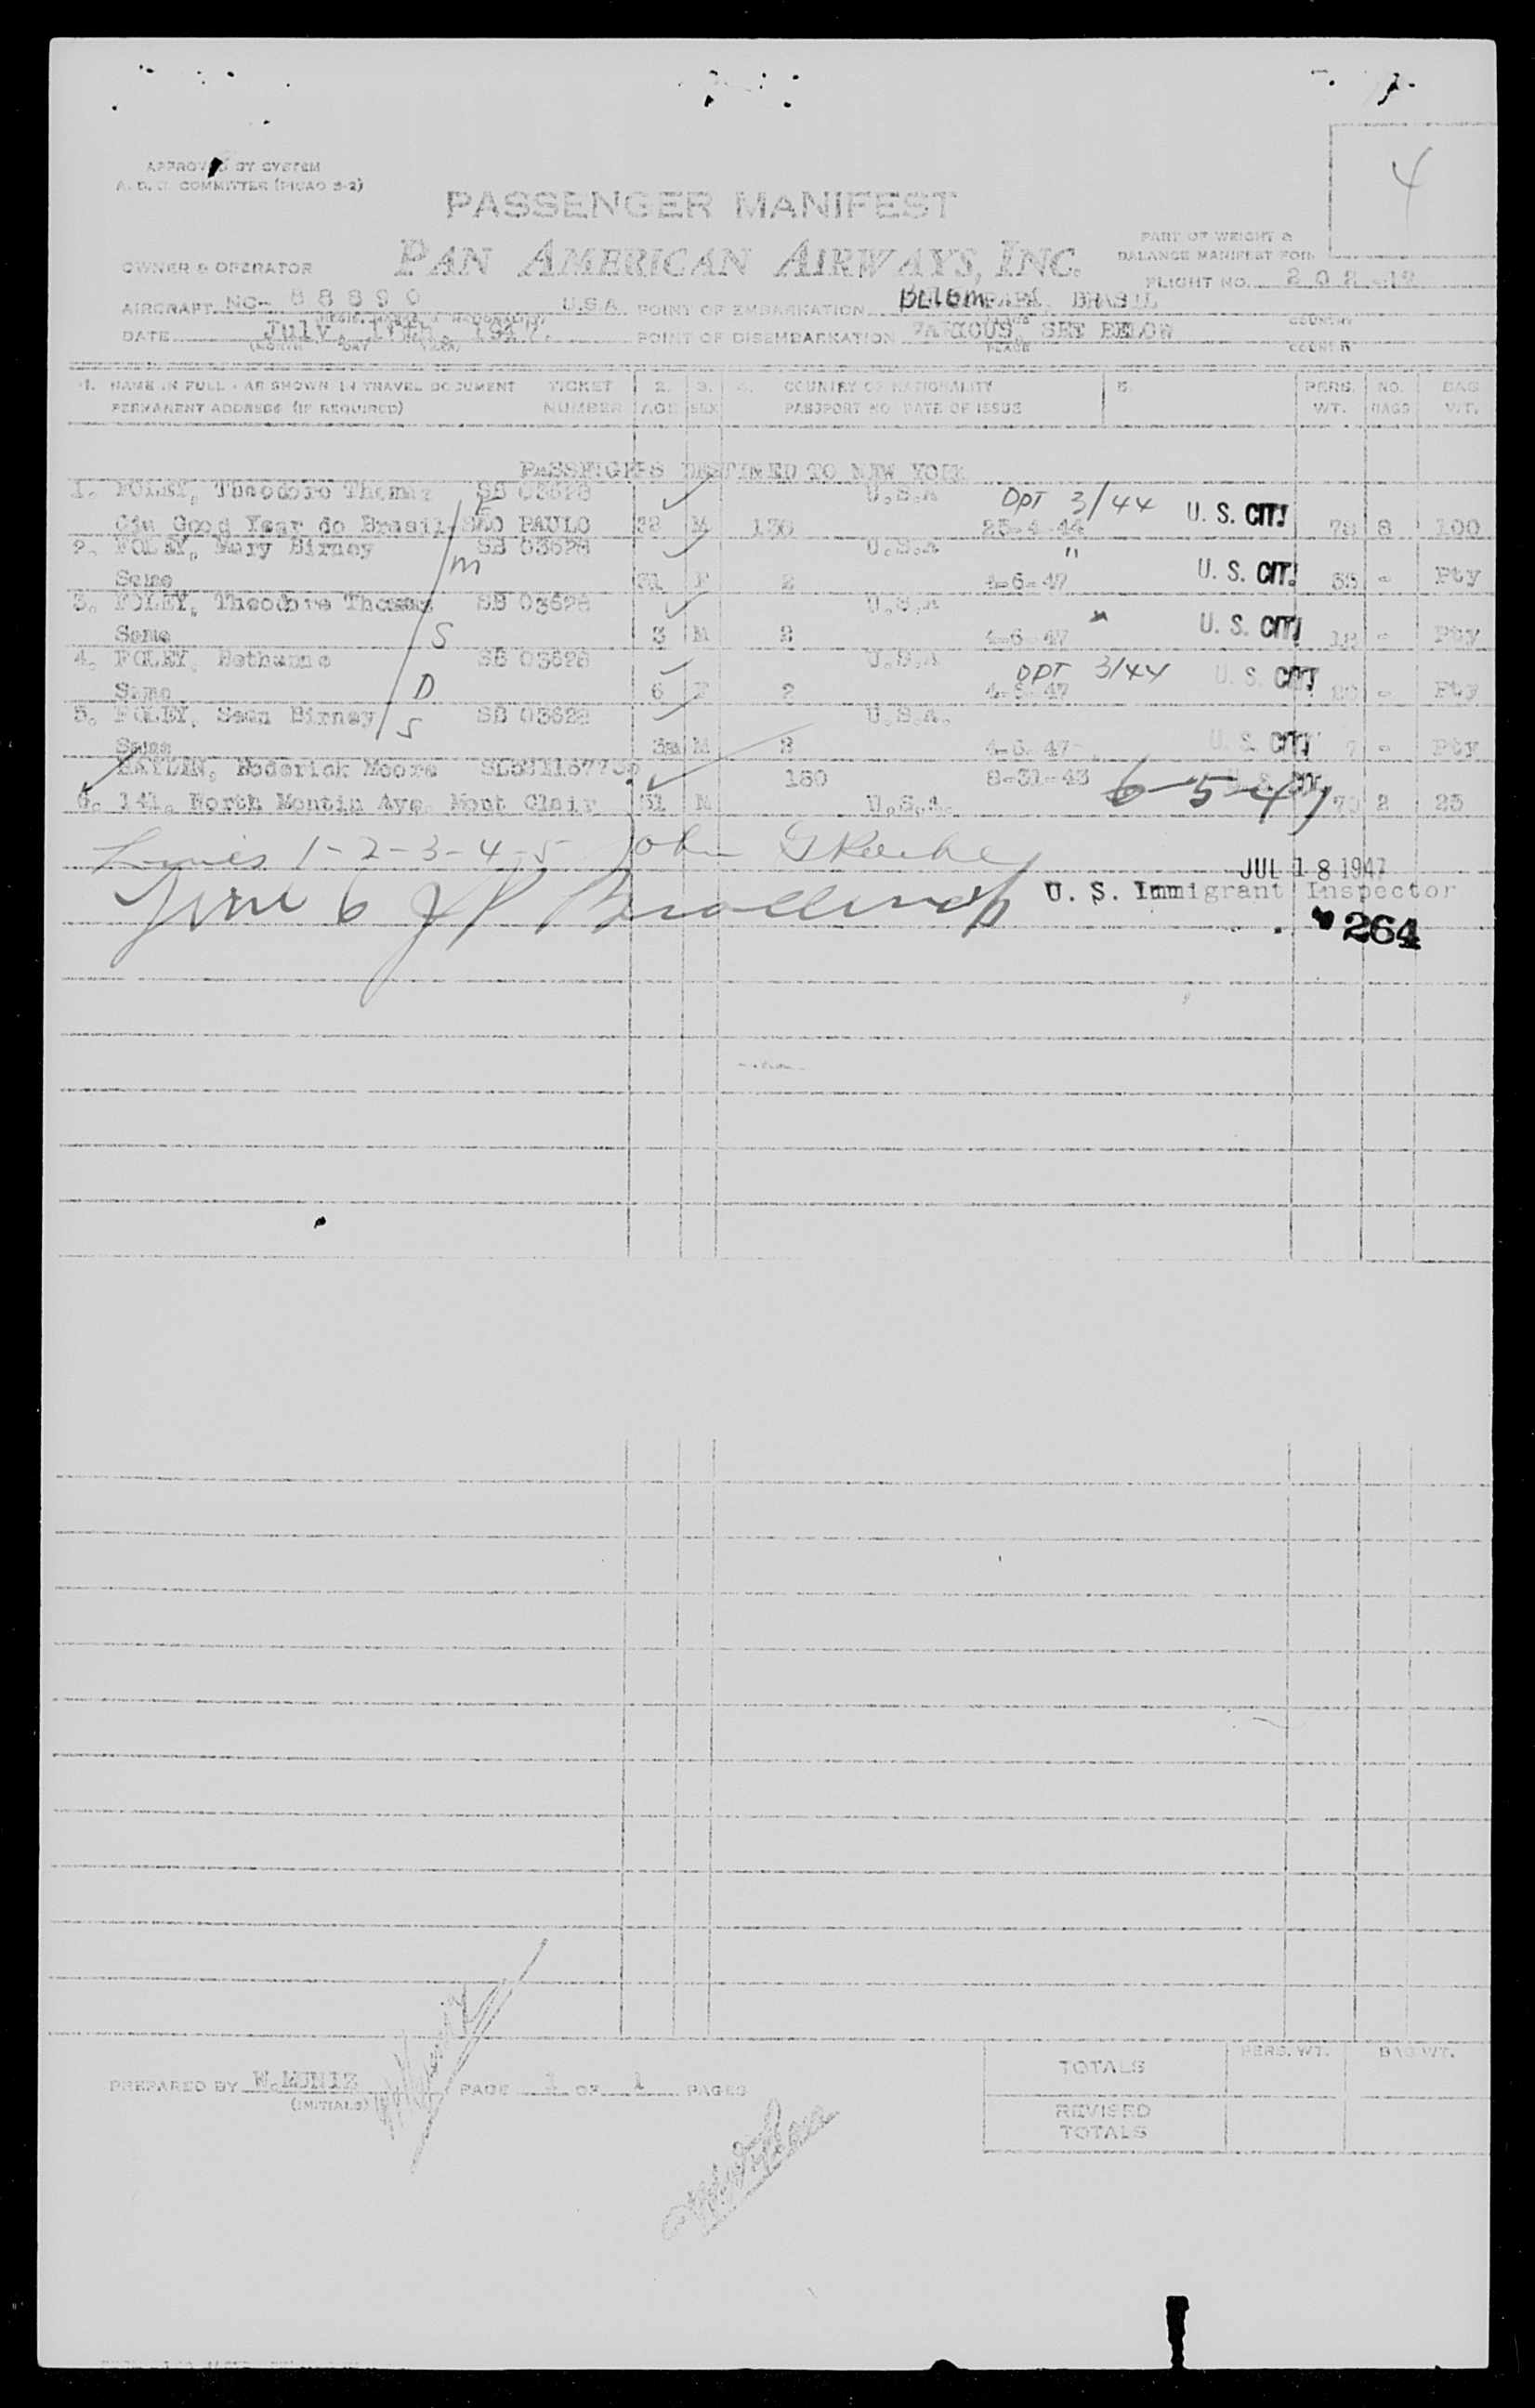 4
APPROVED BY SYSTEM
A. D. C. COMMITTEE (PICAO S-2)
PASSENGER MANIFEST
PAN AMERICAN AIRWAYS, INC.
PART OF WEIGHT &
BALANCE MANIFEST FOR
OWNER & OPERATOR
FLIGHT NO. 202-12
AIRCRAFT NC- 88890 U.S.A. POINT OF EMBARKATION Belem PARA BRASIL
DATE July 17th, 1947. POINT OF DISEMBARKATION VARIOUS SEE BELOW
(MONTH DAY YEAR) PLACE COUNTRY
1. NAME IN FULL - AS SHOWN IN TRAVEL DOCUMENT TICKET 2. 3. 4. COUNTRY OF NATIONALITY 5. PERS. NO. BAG
PERMANENT ADDRESS (IF REQUIRED) NUMBER AGE SEX PASSPORT NO. DATE OF ISSUE WT. BAGS WT.
PASSENGERS DESTINED TO NEW YORK
1. FOLEY, Theodore Thomas SB 03628 U.S.A DPT 3/44 U. S. CIT.
Cia Good Year do Brasil- SAO PAULO 32 M 130 25-4-44 78 8 100
2. FOLEY, Mary Birney SB 03628 U.S.A "
M U. S. CIT.
Same 31 F 2 4-6-47 55 - Pty
3. FOLEY, Theodore Thomas SB 03628 U.S.A U. S. CIT.
Same S 3 M 2 4-6-47 12 - Pty
4. FOLEY, Bethanne SB 03628 U.S.A DPT 3/44 U. S. CIT.
Same D 6 F 2 4-6-47 20 - Pty
5. FOLEY, Sean Birney S SB 03628 U.S.A.
Same 3m M 2 4-6-47 U. S. CIT. 7 - Pty
Roderick Moore 180 8-31-43 6-5-47
6. 141, North Montin Ave. Mont Clair 51 M U.S.A. 70 2 25
Lines 1-2-3-4-5 John
JUL 18 1947
Line 6
U. S. Immigrant Inspector
264
PREPARED BY W.MUNIZ PAGE 1 OF 1 PAGES
(INITIALS)
TOTALS PERS. WT. BAG WT.
REVISED
TOTALS